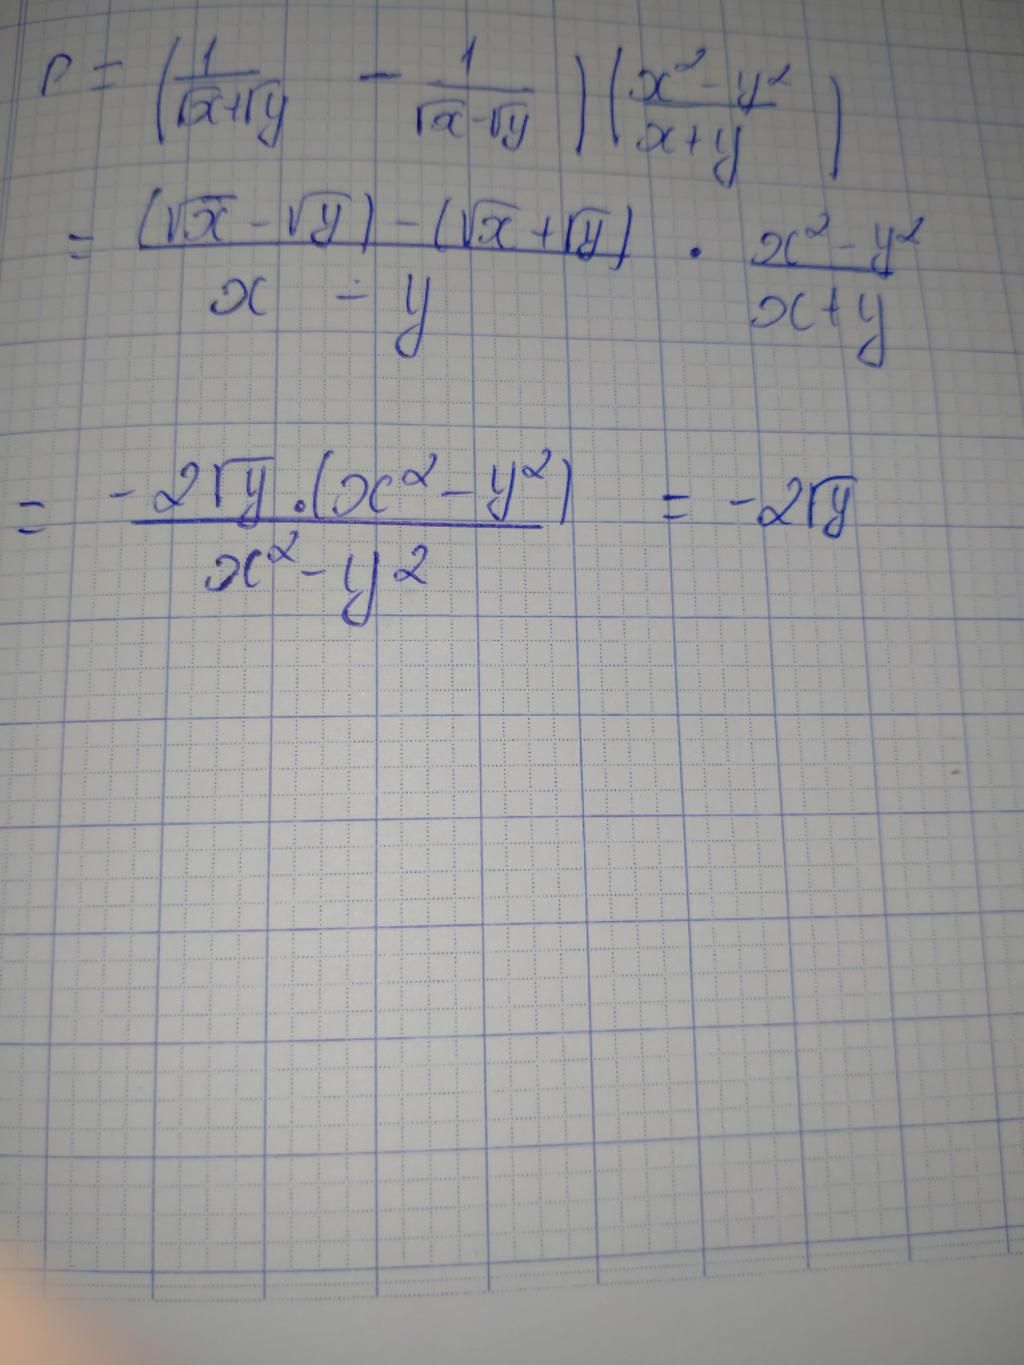 P = (1/(√x+√y) - 1/(√x-√y)) ((x²-y²)/(x+y))
= ((√x - √y) - (√x + √y))/(x - y) · (x² - y²)/(x + y)
= (-2√y · (x² - y²))/(x² - y²) = -2√y